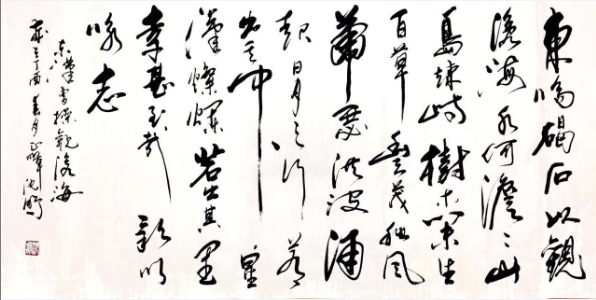 東臨碣石以觀
滄海水何澹〻山
島竦峙樹木叢生
百草豐茂秋風
蕭瑟洪波涌
起日月之行若
出其中星
漢燦爛若出其里
幸甚至哉歌以
咏志
曹操觀滄海
丁酉春月